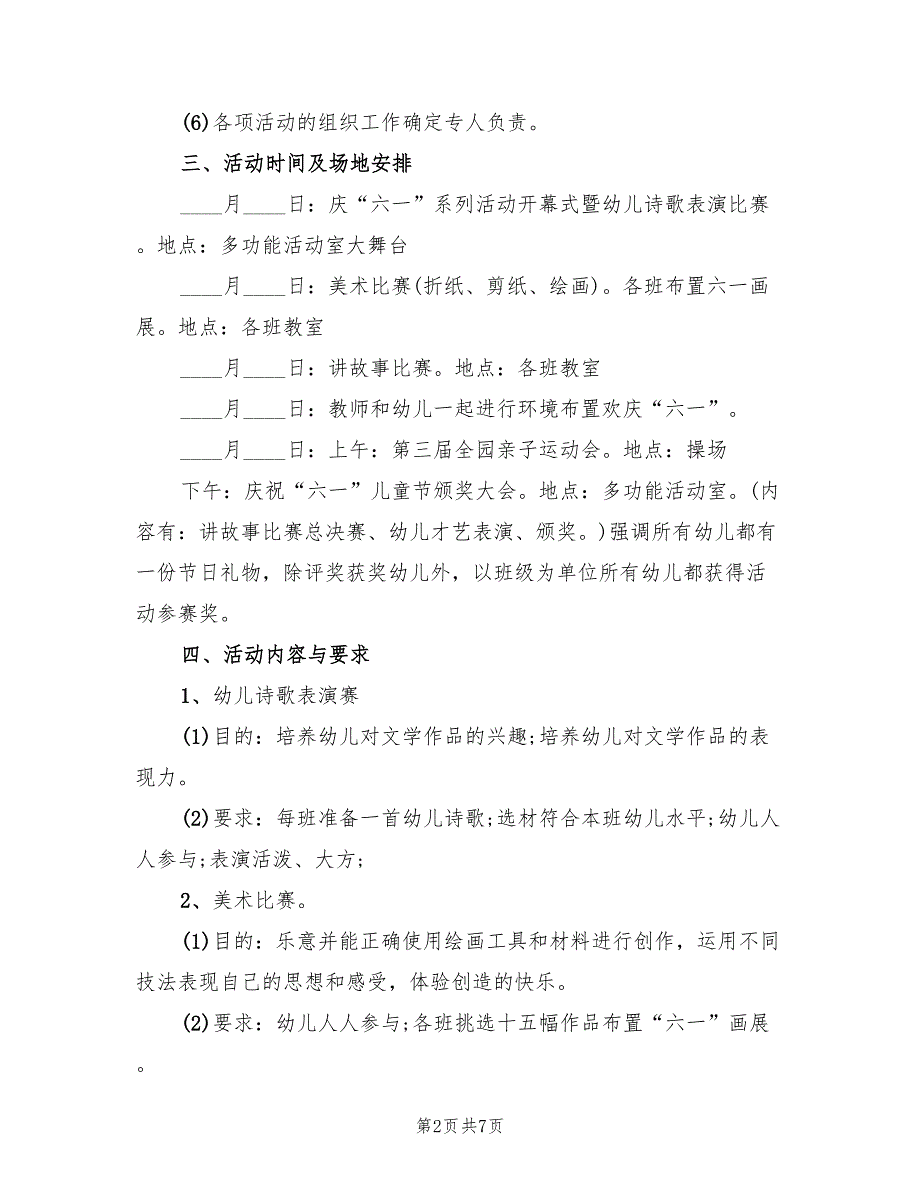 (6)各项活动的组织工作确定专人负责。
三、活动时间及场地安排
____月____日：庆“六一”系列活动开幕式暨幼儿诗歌表演比赛
。地点：多功能活动室大舞台
____月____日：美术比赛(折纸、剪纸、绘画)。各班布置六一画
展。地点：各班教室
____月____日：讲故事比赛。地点：各班教室
____月____日：教师和幼儿一起进行环境布置欢庆“六一”。
____月____日：上午：第三届全园亲子运动会。地点：操场
下午：庆祝“六一”儿童节颁奖大会。地点：多功能活动室。(内
容有：讲故事比赛总决赛、幼儿才艺表演、颁奖。)强调所有幼儿都有
一份节日礼物，除评奖获奖幼儿外，以班级为单位所有幼儿都获得活
动参赛奖。
四、活动内容与要求
1、幼儿诗歌表演赛
(1)目的：培养幼儿对文学作品的兴趣;培养幼儿对文学作品的表
现力。
(2)要求：每班准备一首幼儿诗歌;选材符合本班幼儿水平;幼儿人
人参与;表演活泼、大方;
2、美术比赛。
(1)目的：乐意并能正确使用绘画工具和材料进行创作，运用不同
技法表现自己的思想和感受，体验创造的快乐。
(2)要求：幼儿人人参与;各班挑选十五幅作品布置“六一”画展
。
第2页共7页